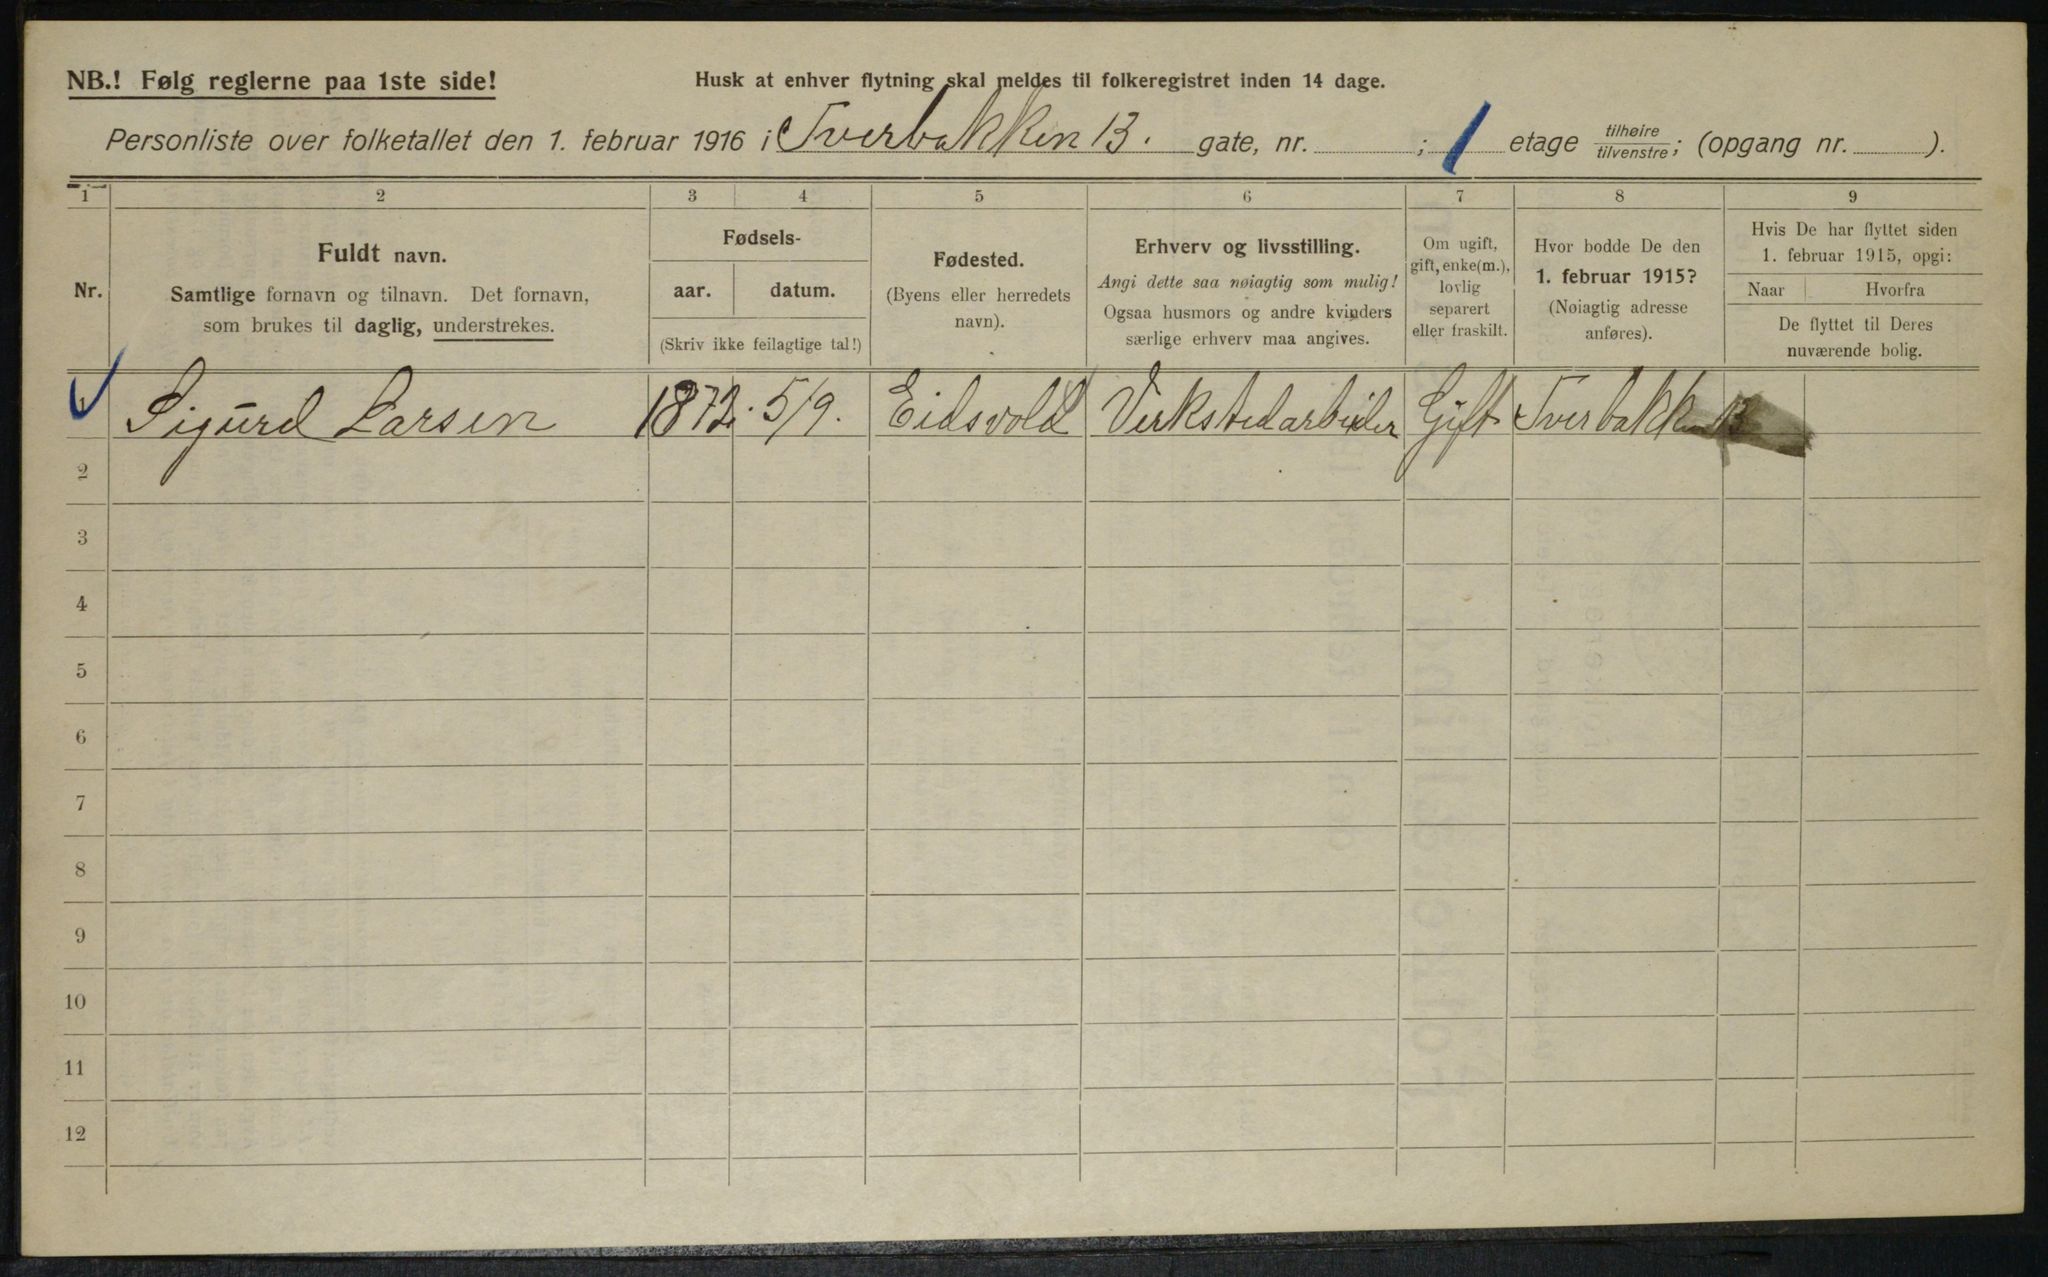 NB.! Følg reglerne paa 1ste side!
Husk at enhver flytning skal meldes til folkeregistret inden 14 dage.
Personliste over folketallet den 1. februar 1916 i Tverbakken 13. gate, nr. ; 1 etage tilhøire/tilvenstre; (opgang nr. ).
1 2 3 4 5 6 7 8 9
Nr.
Fuldt navn.
Samtlige fornavn og tilnavn. Det fornavn,
som brukes til daglig, understrekes.
Fødsels-
aar. datum.
(Skriv ikke feilagtige tal!)
Fødested.
(Byens eller herredets
navn).
Erhverv og livsstilling.
Angi dette saa nøiagtig som mulig!
Ogsaa husmors og andre kvinders
særlige erhverv maa angives.
Om ugift,
gift, enke(m.),
lovlig
separert
eller fraskilt.
Hvor bodde De den
1. februar 1915?
(Nøiagtig adresse
anføres).
Hvis De har flyttet siden
1. februar 1915, opgi:
Naar Hvorfra
De flyttet til Deres
nuværende bolig.
1 Sigurd Larsen 1872. 5/9. Eidsvold Verkstedarbeider Gift Tverbakken 13
2
3
4
5
6
7
8
9
10
11
12